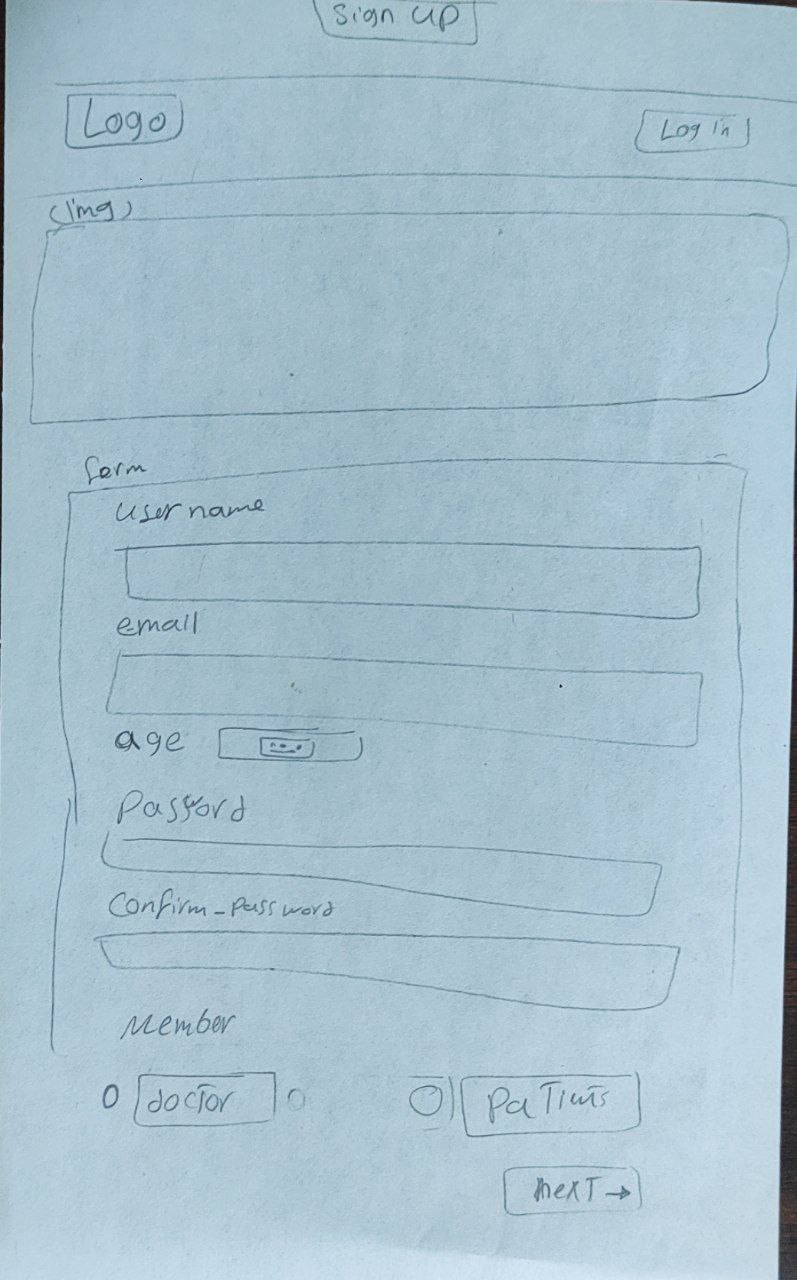 Sign up
Logo
Log in
(Img)
form
user name
email
age
Password
Confirm_password
Member
doctor
paTients
nexT →